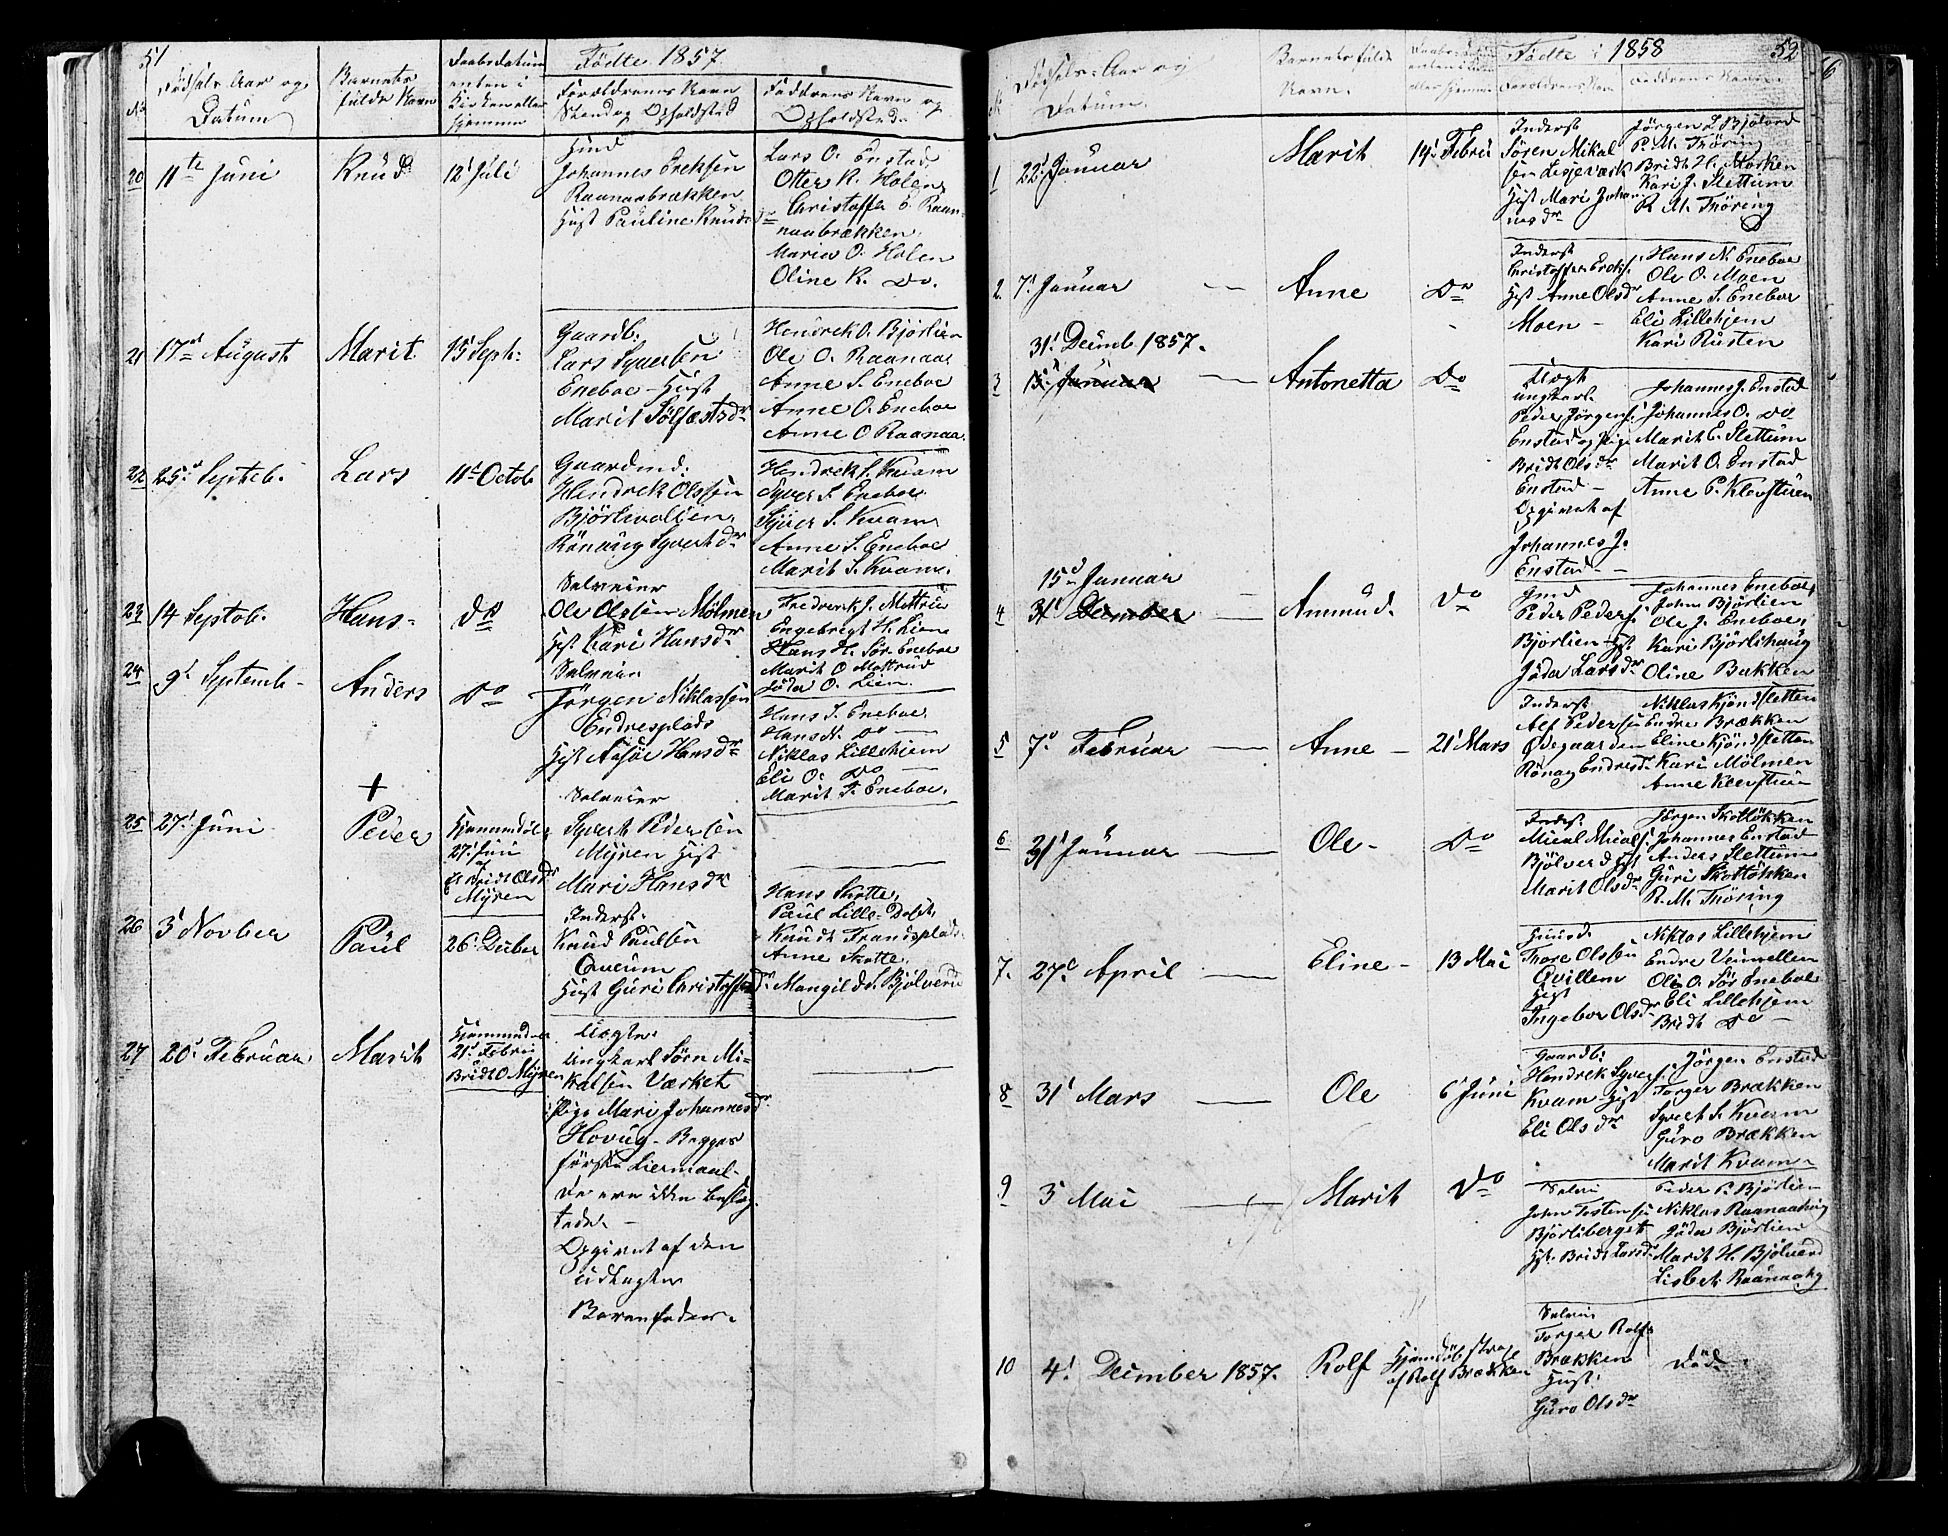 51
Fødte 1857
No
Fødsels-Aar og
Datum
Barnets
fulde Navn
Daabs Datum
enten i
Kirken eller
hjemme
Forældrenes Navn
Stand og Opholdsted
Faddrenes Navn og
Opholdsted.
20
11te Juni
Knud
12' Juli
Huusd
Johannes Ereksen
Raanaabrækken
Hust Pauline Knudsdr
Lars O. Enstad
Otter K. Holen
Christoffer E. Raa-
naabrækken
Maria O. Holen
Oline K. Do.
21
17de August
Marit
15' Septr
Gaardb:
Lars Syversen
Eneboe - Hust
Marit Sølfestsdr
Hendrek O. Bjørlien
Ole O. Raanaa
Anne S. Eneboe
Anne O. Eneboe
Anne O Raanaa.
22
25d Septeb.
Lars
11te Octob
Gaardmd:
Hendrek Olssen
Bjørlivolden.
Rønaug Syvertdr
Hendrek S. Kvam
Syver S. Eneboe
Syver S. Kvam
Anne S. Eneboe
Marit S. Kvam.
23
14 Septob.
Hans -
Do
Selveier
Ole Olssen Mølmen
Hst. Kari Hansdr
Fredrerk J. Mottrü
Engebregt H. Lien
Hans H. Sør-Eneboe
Marit O Mottrud
Jøda O. Lien.
24
9' Septemb -
Anders
Do
Selveier
Jørgen Niklassen
Endresplads
Hst Aasøe Hansdr
Hans J. Eneboe.
Hans N. Do
Niklas Lillehjem
Eli O. Do
Marit T. Eneboe.
25
27' Juni
+
Peder
Hjemmedøb
27' Juni
af
Bridt Olsdr
Myren
Selveier
Syvert Pedersen
Myren Hst
Mari Hansdr
26
3' Novber
Paul
26' Decber
Inderst.
Knud Paulsen
Qverum
Hust Guri Christoffersdr
Hans Skotte.
Paul Lille-Dosit,
Knudt Frandsplads
Anne Skotte.
Mangild S. Bjølverud
27
20' Februar
Marit
Hjemmedøb
21' Febru
Bridt O Myren
Uægte.
Ungkarl Sørn Mi-
kalsen Værket
Pige Mari Johannesdr
Hovug - Begges
første Liermaal -
De ere ikke beslæg-
tede -
Opgivet af den
udlagte
Barnefader.
52
Fødte i 1858
No
Fødsels-Aar og
Datum.
Barnets fulde
Navn.
Daabs Datum
enten i Kirken
eller hjemme
Forældrenes Navn
Faddrenes Navn
1
22' Januar
Marit
14' Febru
Inderst
Søren Mikal
sen Lesjeværk
Hst Mari Johan
nesdr
Jørgen L Bjølverd
P. M. Thøring
Bridt H. Storken
Kari J. Slettum
R. M. Thøring
2.
7' Januar
Anne
Do
Inderst
Christoffer Erek.
Hst Anne Olsdr
Moen -
Hans N. Eneboe
Ole O. Moen
Anne S. Eneboe
Eli Lillehjem
Kari Rusten
3
31' Decemb 1857.
15' Januar
Antonetta
Do
Uægt
ungkarl.
Peder Jørgens.
Enstad og Pige
Bridt Olsdr
Enstad -
Opgivet af
Johannes J.
Enstad -
Johannes J. Enstad
Johannes O. Do
Marit E. Slettum
Marit O. Enstad
Anne P. Klevstuen
4
15d Januar
31' December
Ammund.
Do
Huusd
Peder Peders.
Bjørlien Hst
Jøda Larsdr
Johannes Eneboe
John Bjørlien
Ole J. Eneboe,
Kari Bjørlihaug
Oline Bakken
5
7' Februar
Anne -
21' Mars
Inderst
Alf Pedersen
Ødegaarden
Rønag Endresd.
Niklas Kjøndsletten
Endre Brækken
Eline Kjøndsletten
Kari Mølmen
Anne Klevstuen
6
31' Januar
Ole -
Do
Inderst.
Mical Micals.
Bjølverd Hst
Marit Olsdr
Jørgen Skotløkken
Johannes Enstad
Anders Slettum
Guri Skotløkken
R. M. Thøring
7.
27d April
Eline -
13 Mai
Huusd.
Thore Olssen
Qvillem
Hst
Ingebor Olsdr
Niklas Lillehjem
Endre Venmellen
Ole O. Sør Eneboe
Eli Lillehjem
Bridt Do -
8
31' Mars
Ole
6' Juni
Gaardb:
Hendrek Syvers.
Kvam - Hst
Eli Olsdr
Jørgen Enstad
Torger Brækken
Syvert S. Kvam
Guro Brækken
Marit Kvam
9
3 Mai
Marit
Do
Selvei
John Tostensen
Bjørliberget
Hst. Bridt Larsdr
Peder P. Bjørlien
Niklas Raanaahug
Jøda Bjørlien
Marit H. Bjølverd
Lisbet Raanaahg
10
4' December 1857.
Rolf
Hjemdøbt strax
af Rolf Brækken
Selvei
Torger Rolfs
Brækken
Hust.
Guro Olsdr
Død.
6